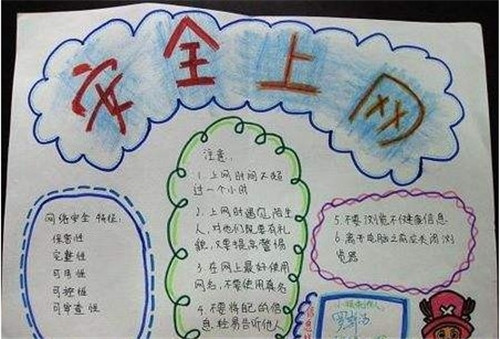 安全上网
网络安全特征:
保密性
完整性
可用性
可控性
可审查性
注意:
1.上网时间不超
过一个小时
2.上网时遇见陌生
人,对他们既要有礼
貌,又要提高警惕
3.在网上最好使用
网名,不要使用真名
4.不要将自己的信
息轻易告诉他人
5.不要浏览不健康信息
6.离开电脑之前应关闭浏
览器